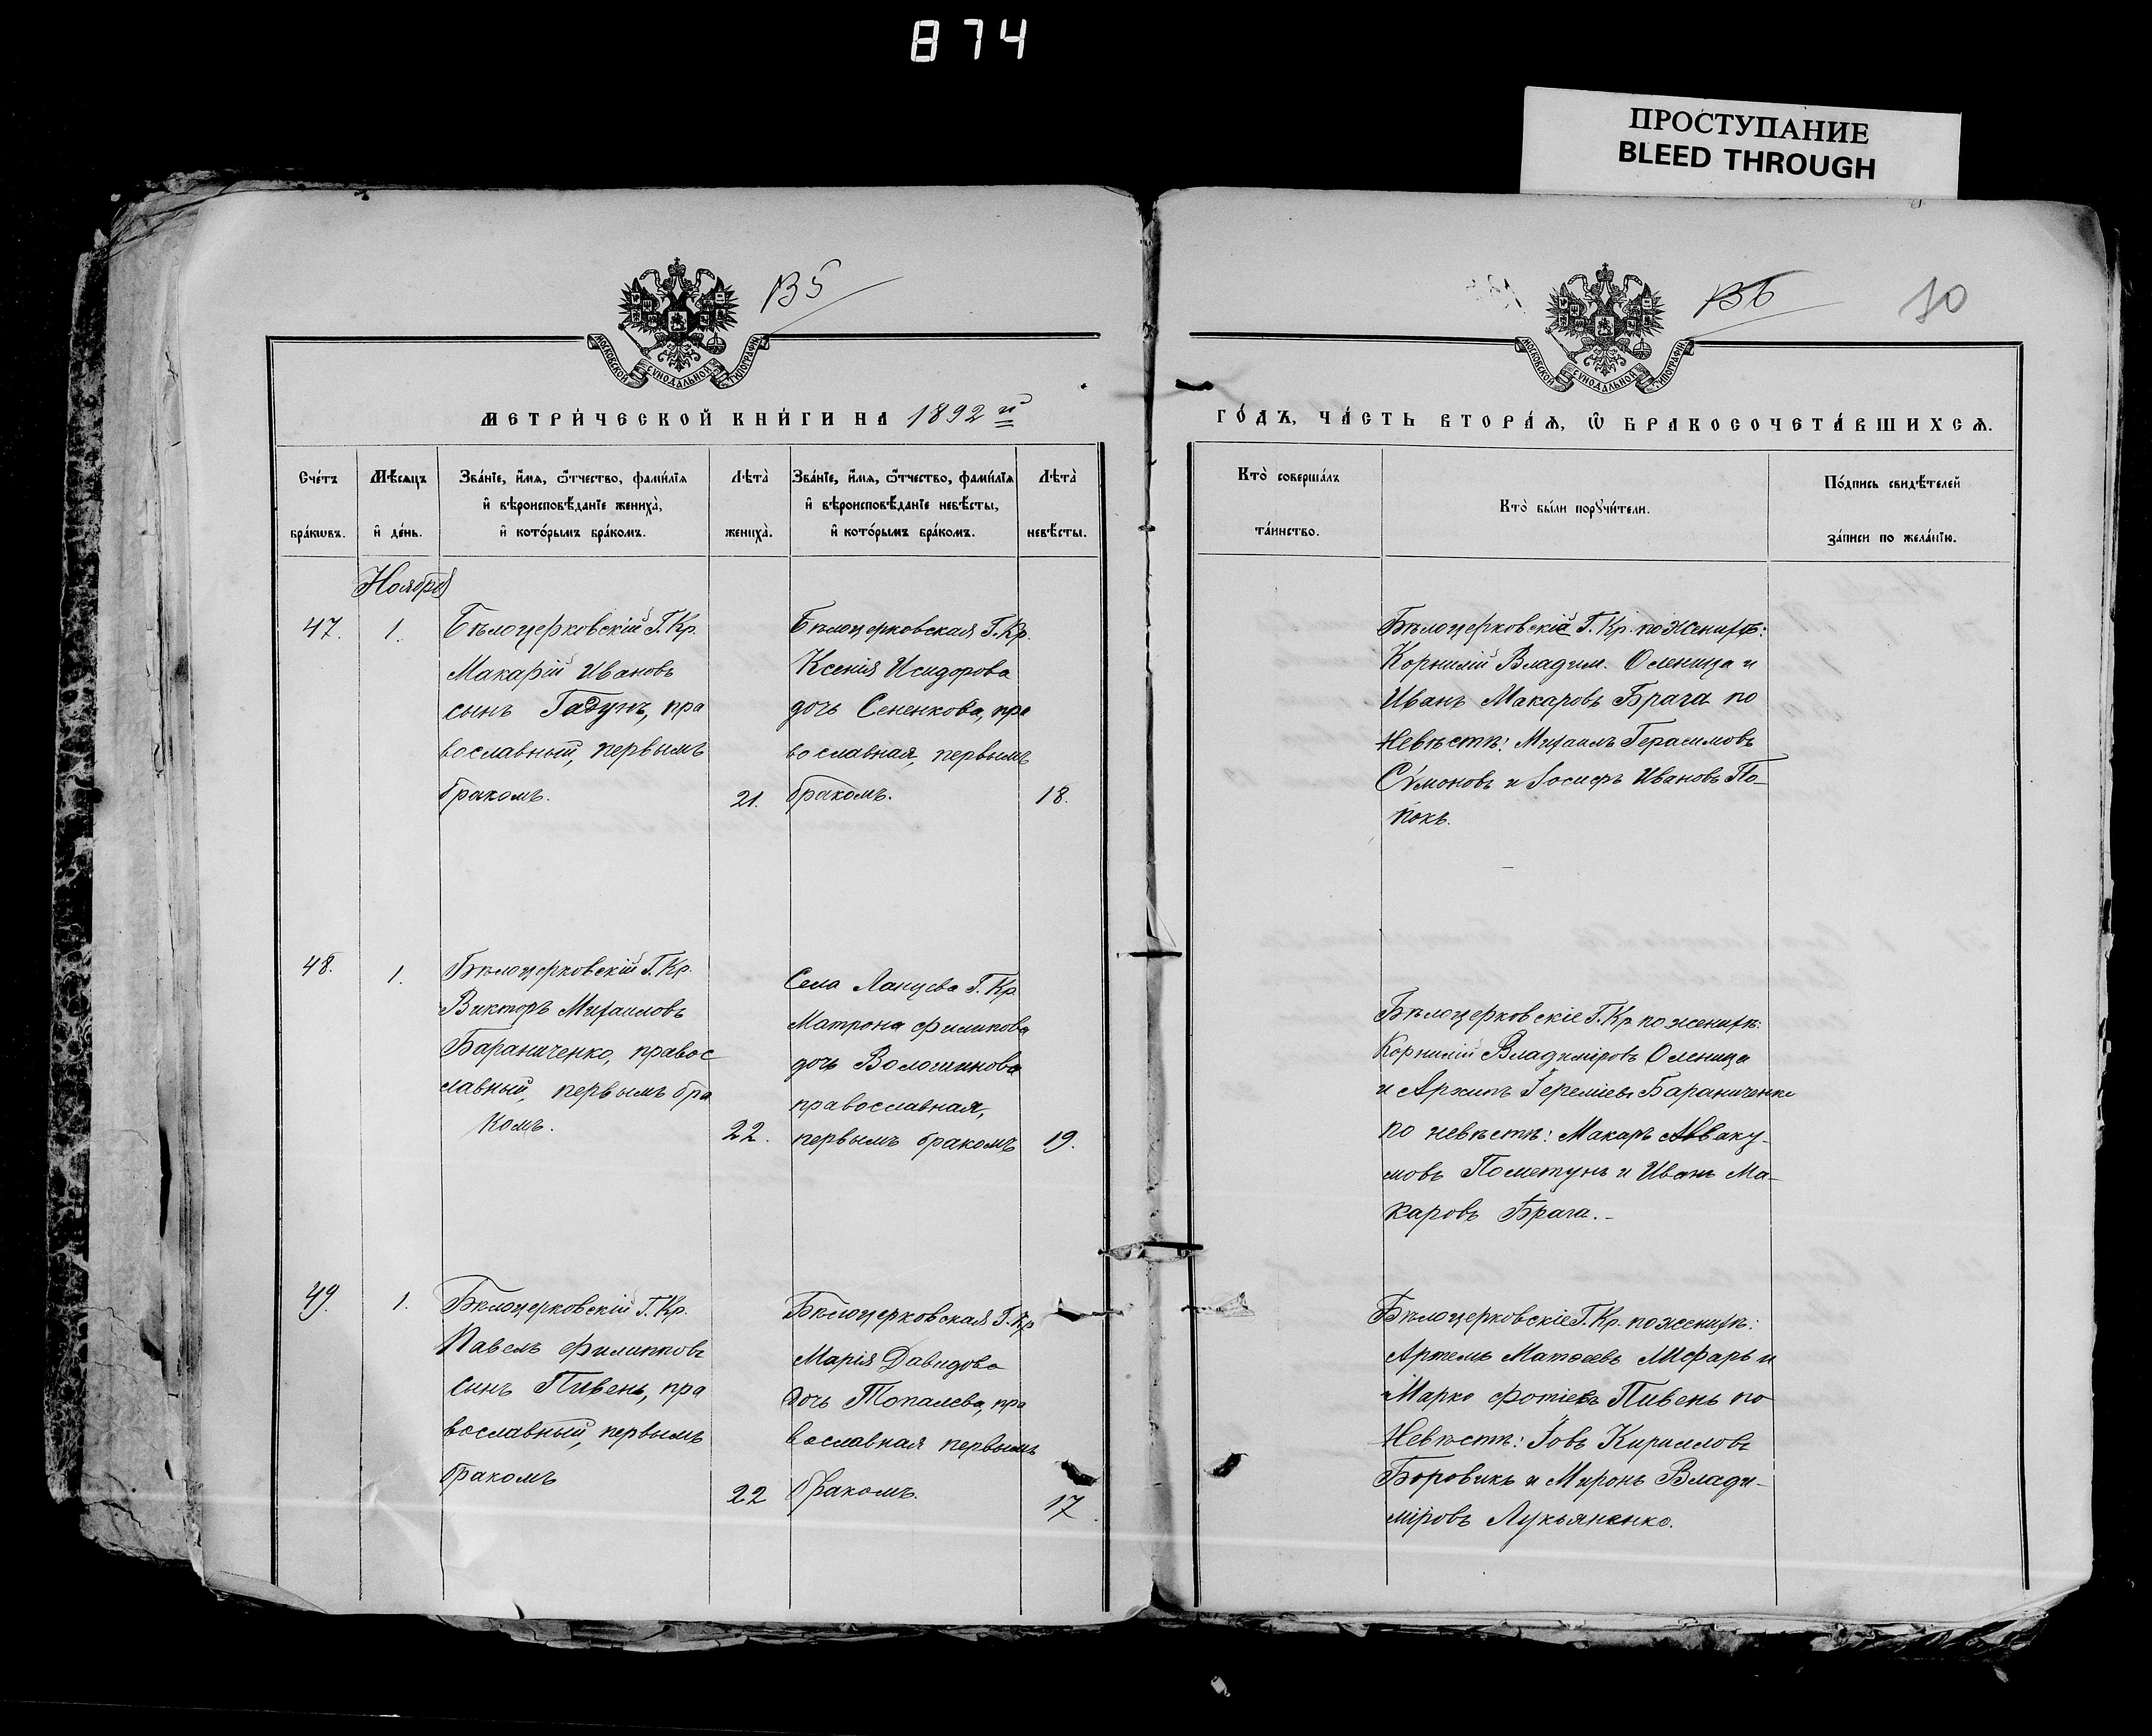 874
ПРОСТУПАНИЕ
BLEED THROUGH
135
136
70
МОСКОВСКОЙ СУНОДАЛЬНОЙ ТИПОГРАФІИ
МОСКОВСКОЙ СУНОДАЛЬНОЙ ТИПОГРАФІИ
МЕТРИ́ЧЕСКОЙ КНИ́ГИ НА 1892 й
ГО́ДЪ, ЧА́СТЬ ВТОРА́Ѧ, Ѽ БРАКОСОЧЕТА́ВШИХСѦ.
Сче́тъ
бра́кѡвъ.
Мѣ́сяцъ
и҆ де́нь.
Зва́нїе, и҆́мѧ, ѻ҆́тчество, фами́лїѧ
и҆ вѣроисповѣ́данїе жениха̀,
и҆ кото́рымъ бра́комъ.
Лѣта̀
жениха̀.
Зва́нїе, и҆́мѧ, ѻ҆́тчество, фами́лїѧ
и҆ вѣроисповѣ́данїе невѣ́сты,
и҆ кото́рымъ бра́комъ.
Лѣта̀
невѣ́сты.
Кто̀ соверша́лъ
та́инство.
Кто̀ бы́ли порꙋчи́тели.
По́дпись свидѣ́телей
за́писи по жела́нїю.
Ноября
47.
1.
Бѣлоцерковскій Г. Кр.
Макарій Ивановъ
сынъ Гадунъ, пра
вославный, первымъ
бракомъ.
21.
Бѣлоцерковская Г. Кр.
Ксенія Исидорова
дочь Сененкова, пра
вославная, первымъ
бракомъ.
18.
Бѣлоцерковскіе Г. Кр. по женихѣ:
Корнилій Владим. Оленица и
Иванъ Макаровъ Брага по
Невѣстѣ: Михаилъ Герасимовъ
Сѵмоновъ и Іосифъ Ивановъ По-
покъ.
48.
1.
Бѣлоцерковскій Г. Кр.
Викторъ Михаиловъ
Бараниченко, правос
лавный, первымъ бра
комъ.
22.
Села Ланцева Г. Кр.
Матрона Филипова
дочь Волошинова
православная,
первымъ бракомъ
19.
Бѣлоцерковскіе Г. Кр. по женихѣ:
Корнилій Владиміровъ Оленица
и Архипъ Іереміевъ Бараниченко
по невѣстѣ: Макаръ Авваку-
мовъ Пометунъ и Иванъ Ма-
каровъ Брага.-
49.
1.
Бѣлоцерковскій Г. Кр.
Павелъ Филипповъ
сынъ Пивень, пра
вославный, первымъ
бракомъ
22
Бѣлоцерковская Г. Кр
Марія Давидова
дочь Топалева, пра
вославная первымъ
бракомъ.
17.
Бѣлоцерковскіе Г. Кр. по женихѣ:
Артемъ Матѳеевъ Лифарь и
Марко Фотіевъ Пивень по
Невѣстѣ: Іовъ Кирилловъ
Боровикъ и Миронъ Влади-
міровъ Лукьяненко.